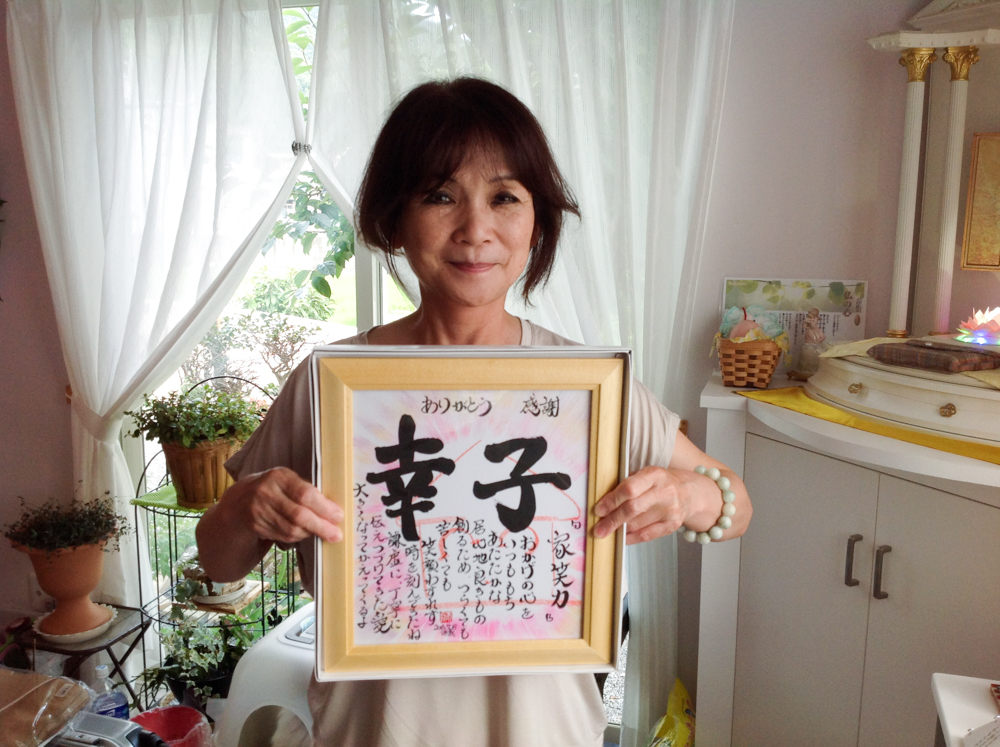 ありがとう 感謝
幸子
「家笑力」
おかげの心を
いつももち
あたたかな
居心地良きもの
創るため つらくても
苦しくても
笑顔わすれず
時を刻んできたね
謙虚に 丁寧に
伝えつづけてきた愛
大きくなってかえってくるよ